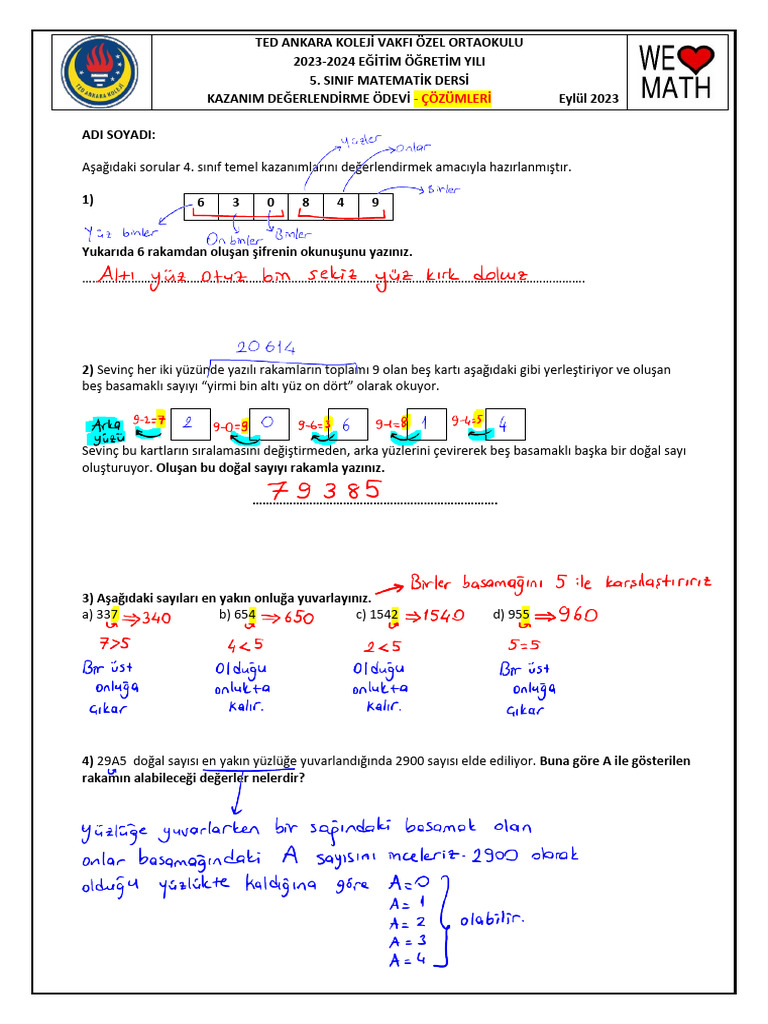 TED ANKARA KOLEJİ VAKFI ÖZEL ORTAOKULU
2023-2024 EĞİTİM ÖĞRETİM YILI
5. SINIF MATEMATİK DERSİ
KAZANIM DEĞERLENDİRME ÖDEVİ - ÇÖZÜMLERİ Eylül 2023
TED ANKARA KOLEJİ
WE
MATH
ADI SOYADI:
Yüzler
Onlar
Aşağıdaki sorular 4. sınıf temel kazanımlarını değerlendirmek amacıyla hazırlanmıştır.
Birler
1) 6 3 0 8 4 9
Yüz binler
On binler Binler
Yukarıda 6 rakamdan oluşan şifrenin okunuşunu yazınız.
Altı yüz otuz bin sekiz yüz kırk dokuz
20614
2) Sevinç her iki yüzünde yazılı rakamların toplamı 9 olan beş kartı aşağıdaki gibi yerleştiriyor ve oluşan
beş basamaklı sayıyı “yirmi bin altı yüz on dört” olarak okuyor.
Arka yüzü 9-2=7 2 9-0=9 0 9-6=3 6 9-1=8 1 9-4=5 4
Sevinç bu kartların sıralamasını değiştirmeden, arka yüzlerini çevirerek beş basamaklı başka bir doğal sayı
oluşturuyor. Oluşan bu doğal sayıyı rakamla yazınız.
79385
Birler basamağını 5 ile karşılaştırırız
3) Aşağıdaki sayıları en yakın onluğa yuvarlayınız.
a) 337 ⇒ 340 b) 654 ⇒ 650 c) 1542 ⇒ 1540 d) 955 ⇒ 960
7>5 4<5 2<5 5=5
Bir üst Olduğu Olduğu Bir üst
onluğa onlukta onlukta onluğa
çıkar kalır. kalır. çıkar
4) 29A5 doğal sayısı en yakın yüzlüğe yuvarlandığında 2900 sayısı elde ediliyor. Buna göre A ile gösterilen
rakamın alabileceği değerler nelerdir?
Yüzlüğe yuvarlarken bir sağındaki basamak olan
onlar basamağındaki A sayısını inceleriz. 2900 olarak
olduğu yüzlükte kaldığına göre A=0
A=1
A=2 olabilir.
A=3
A=4